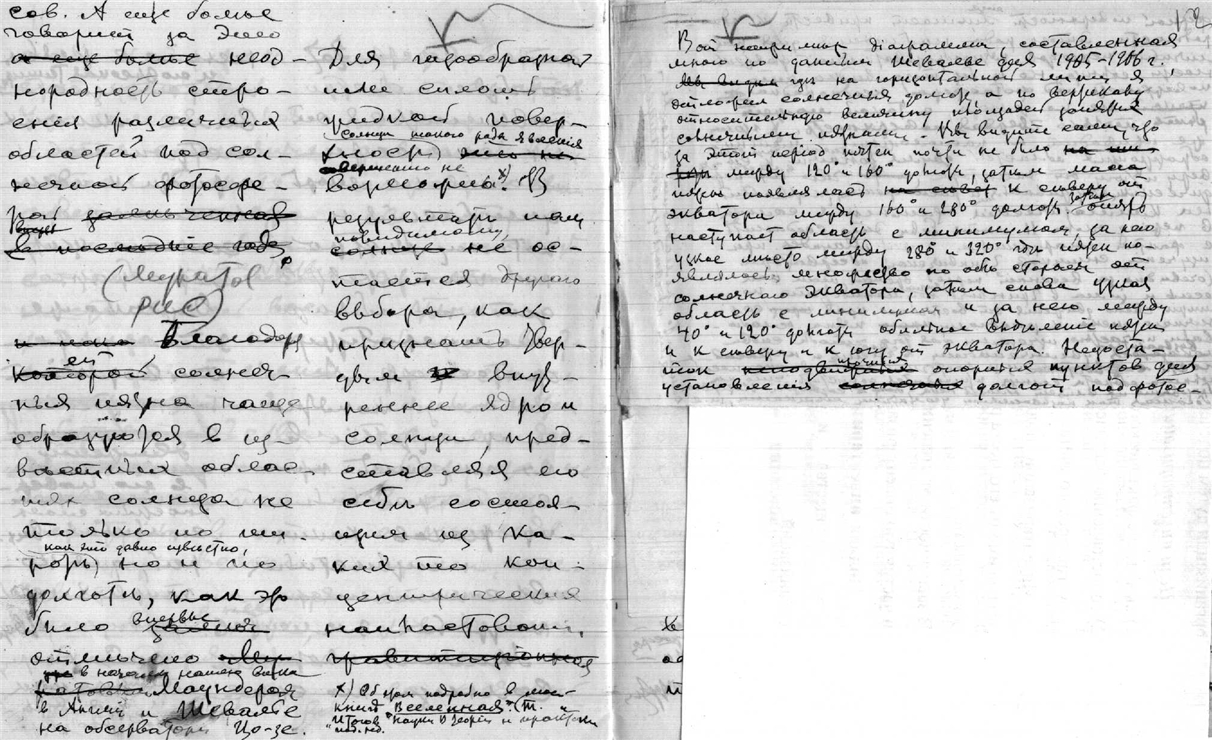 сов. А еще болье
говорит за это
а еще болье неод-
нородность строе-
ения различных
областей под сол-
нечной фотосфе-
рой
в последние годы
(Муратов
рис)
Благодаря
ей
которой солнеч-
ныя пятна чаще
образуются в из-
вестных облас-
тях солнца не
только по ши-
как это давно известно,
роте) но и по
долготе, как это
было впервые
отмечено
в начале нашего века
Маундером
в Англии и Шевалье
на обсерватории Цо-зе.
Для газообразной
или сплошь
жидкой повер-
солнца такого рода явления
хности)
совершенно не
возможны. х) В
результате нам
повидимому
солнце не ос-
тается другого
выбора, как
признать твер-
дым и внут-
реннее ядро
солнца, пред-
ставляя его
себе состоя-
щим из ка-
ких то кон-
центрических
напластований,
гравитационная
х) Об этом подробно в моей
книге "Вселенная" (Т.
Итогов "Науки в теории и практике
изд. под.
12
Вот например диаграмма, составленная
много по данным Шевалье для 1905-1906 г.
как видим где на горизонтальной линии я
отложил солнечныя долготы а по вертикали
относительную величину площадей занятых
солнечными пятнами. Вы видите сами, что
за этот период пятен почти не было
между 120° и 160° долготы, затем масса
пятен появлялась к северу от
экватора между 160° и 280° долготы затем опять
наступает область с минимумом за
узкое место между 280° и 320° где пятен по-
являлось множество по обе стороны от
солнечного экватора, затем снова узкая
область с минимумом и за нею между
40° и 120° долготы обильное выделение пятен
и к северу и к югу от экватора. Недоста-
ток опорных пунктов для
установления солнечных долгот под фотос-